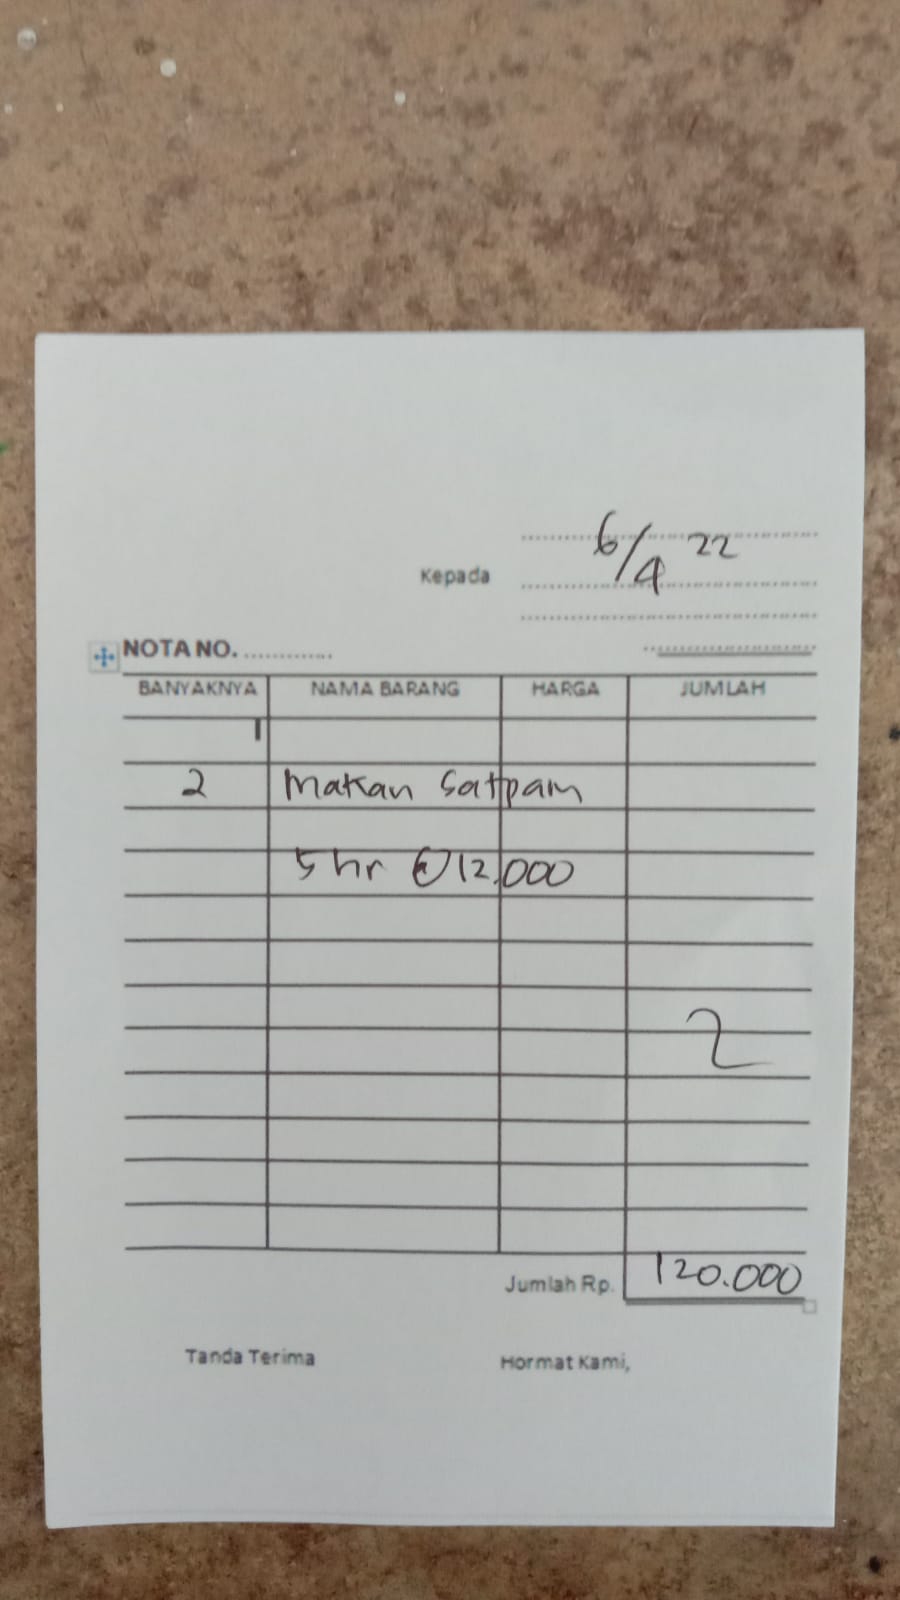 6/4 22
Kepada
NOTA NO. ............
BANYAKNYA NAMA BARANG HARGA JUMLAH
2 Makan Satpam
5 hr @12.000
Jumlah Rp. 120.000
Tanda Terima Hormat Kami,